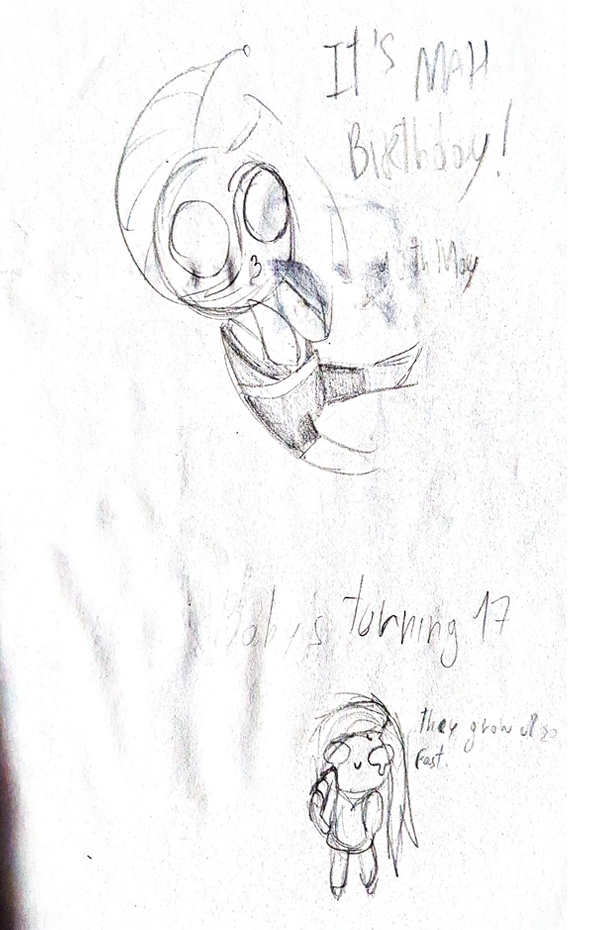 It's MAH
Birthday!
th May
Baby's turning 17
they grow up so
fast.